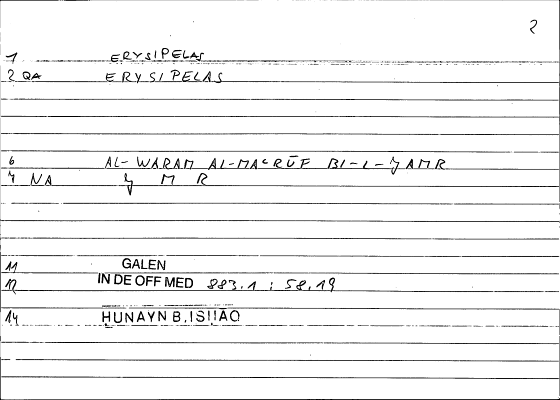 2
1 ERYSIPELAS
2 QA ERYSIPELAS
6 AL-WARAM AL-MAʿRŪF BI-L-ǮAMR
7 NA Ǯ M R
11 GALEN
12 IN DE OFF MED 883.1 : 58.19
14 ḤUNAYN B. ISḤĀQ